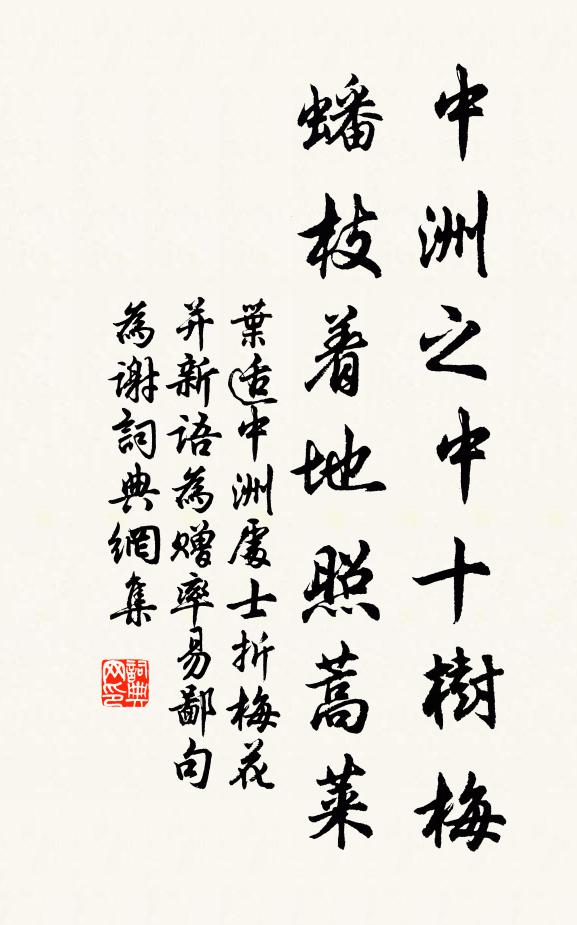 中洲之中十樹梅
蟠枝着地照蒿萊
葉适中洲處士折梅花
并新語為贈率易鄙句
為謝詞典網集
詞典
网印